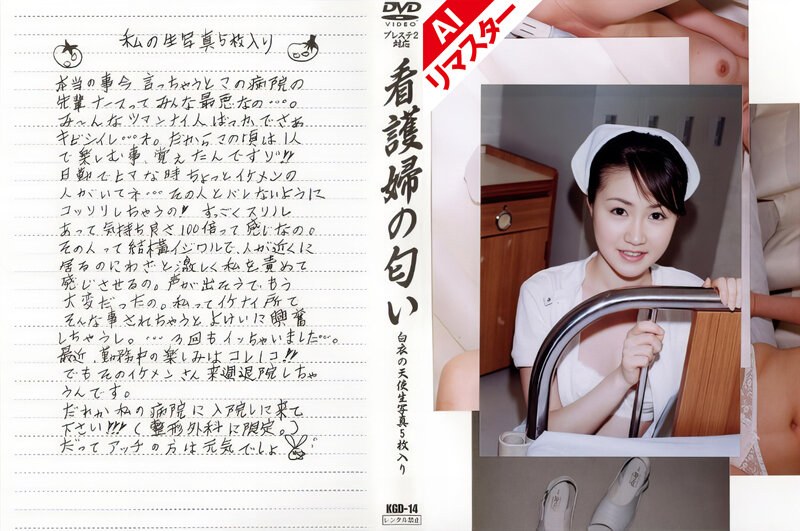 私の生写真5枚入り
本当の事今、言っちゃうとこの病院の
先輩ナースってみんな最悪なの…。
み〜んなツマンナイ人ばっかでさぁ
キビシイし…ネ。だからこの頃は1人
で楽しむ事、覚えたんですゾ!!
日勤でヒマな時ちょっとイケメンの
人がいてネ…その人とバレないように
コッソリしちゃうの!! すっごくスリル
あって気持ち良さ100倍って感じなの。
その人って結構イジワルで、人が近くに
居るのにわざと激しく私を責めて
感じさせるの。声が出そうで、もう
大変だったの。私ってイケナイ所で
そんな事されちゃうとよけいに興奮
しちゃうし。…3回もイッちゃいました…。
最近、勤務中の楽しみはコレ1コ!!
でもそのイケメンさん来週退院しちゃ
うんです。
だれか私の病院に入院しに来て
下さい!!!(整形外科に限定。)
だってアッチの方は元気でしょ
DVD
VIDEO
プレステ2
対応
看護婦の匂い
白衣の天使生写真5枚入り
KGD-14
レンタル禁止
AI
リマスター